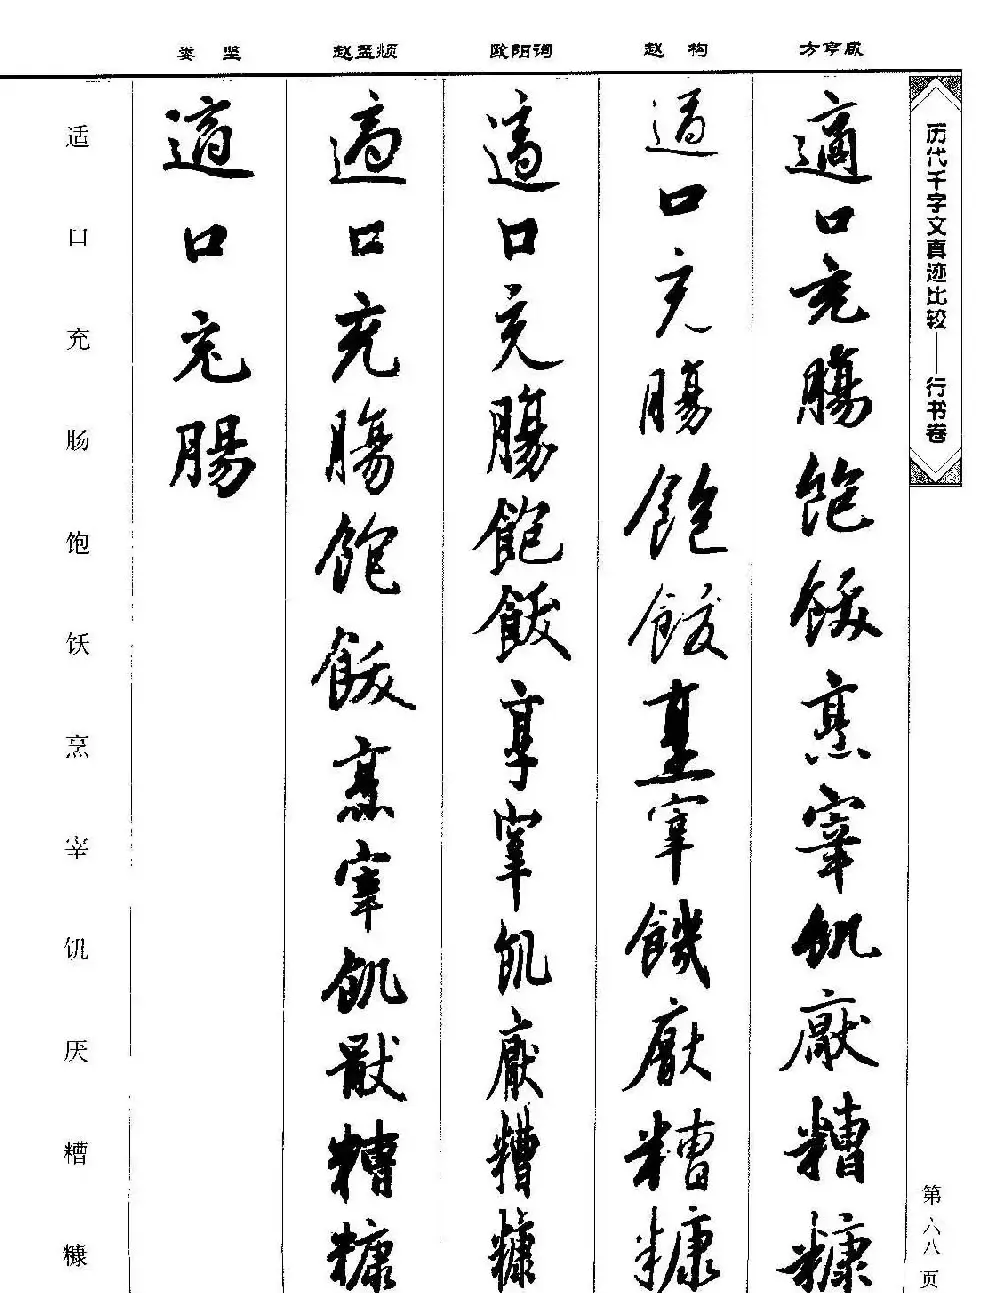 历代千字文真迹比较——行书卷
第六八页
方亨咸
適口充腸飽飫烹宰飢厭糟糠
赵构
適口充腸飽飫烹宰饑厭糟糠
欧阳询
適口充腸飽飫享宰飢厭糟糠
赵孟頫
適口充腸飽飫烹宰飢猒糟糠
娄坚
適口充腸
适口充肠饱饫烹宰饥厌糟糠